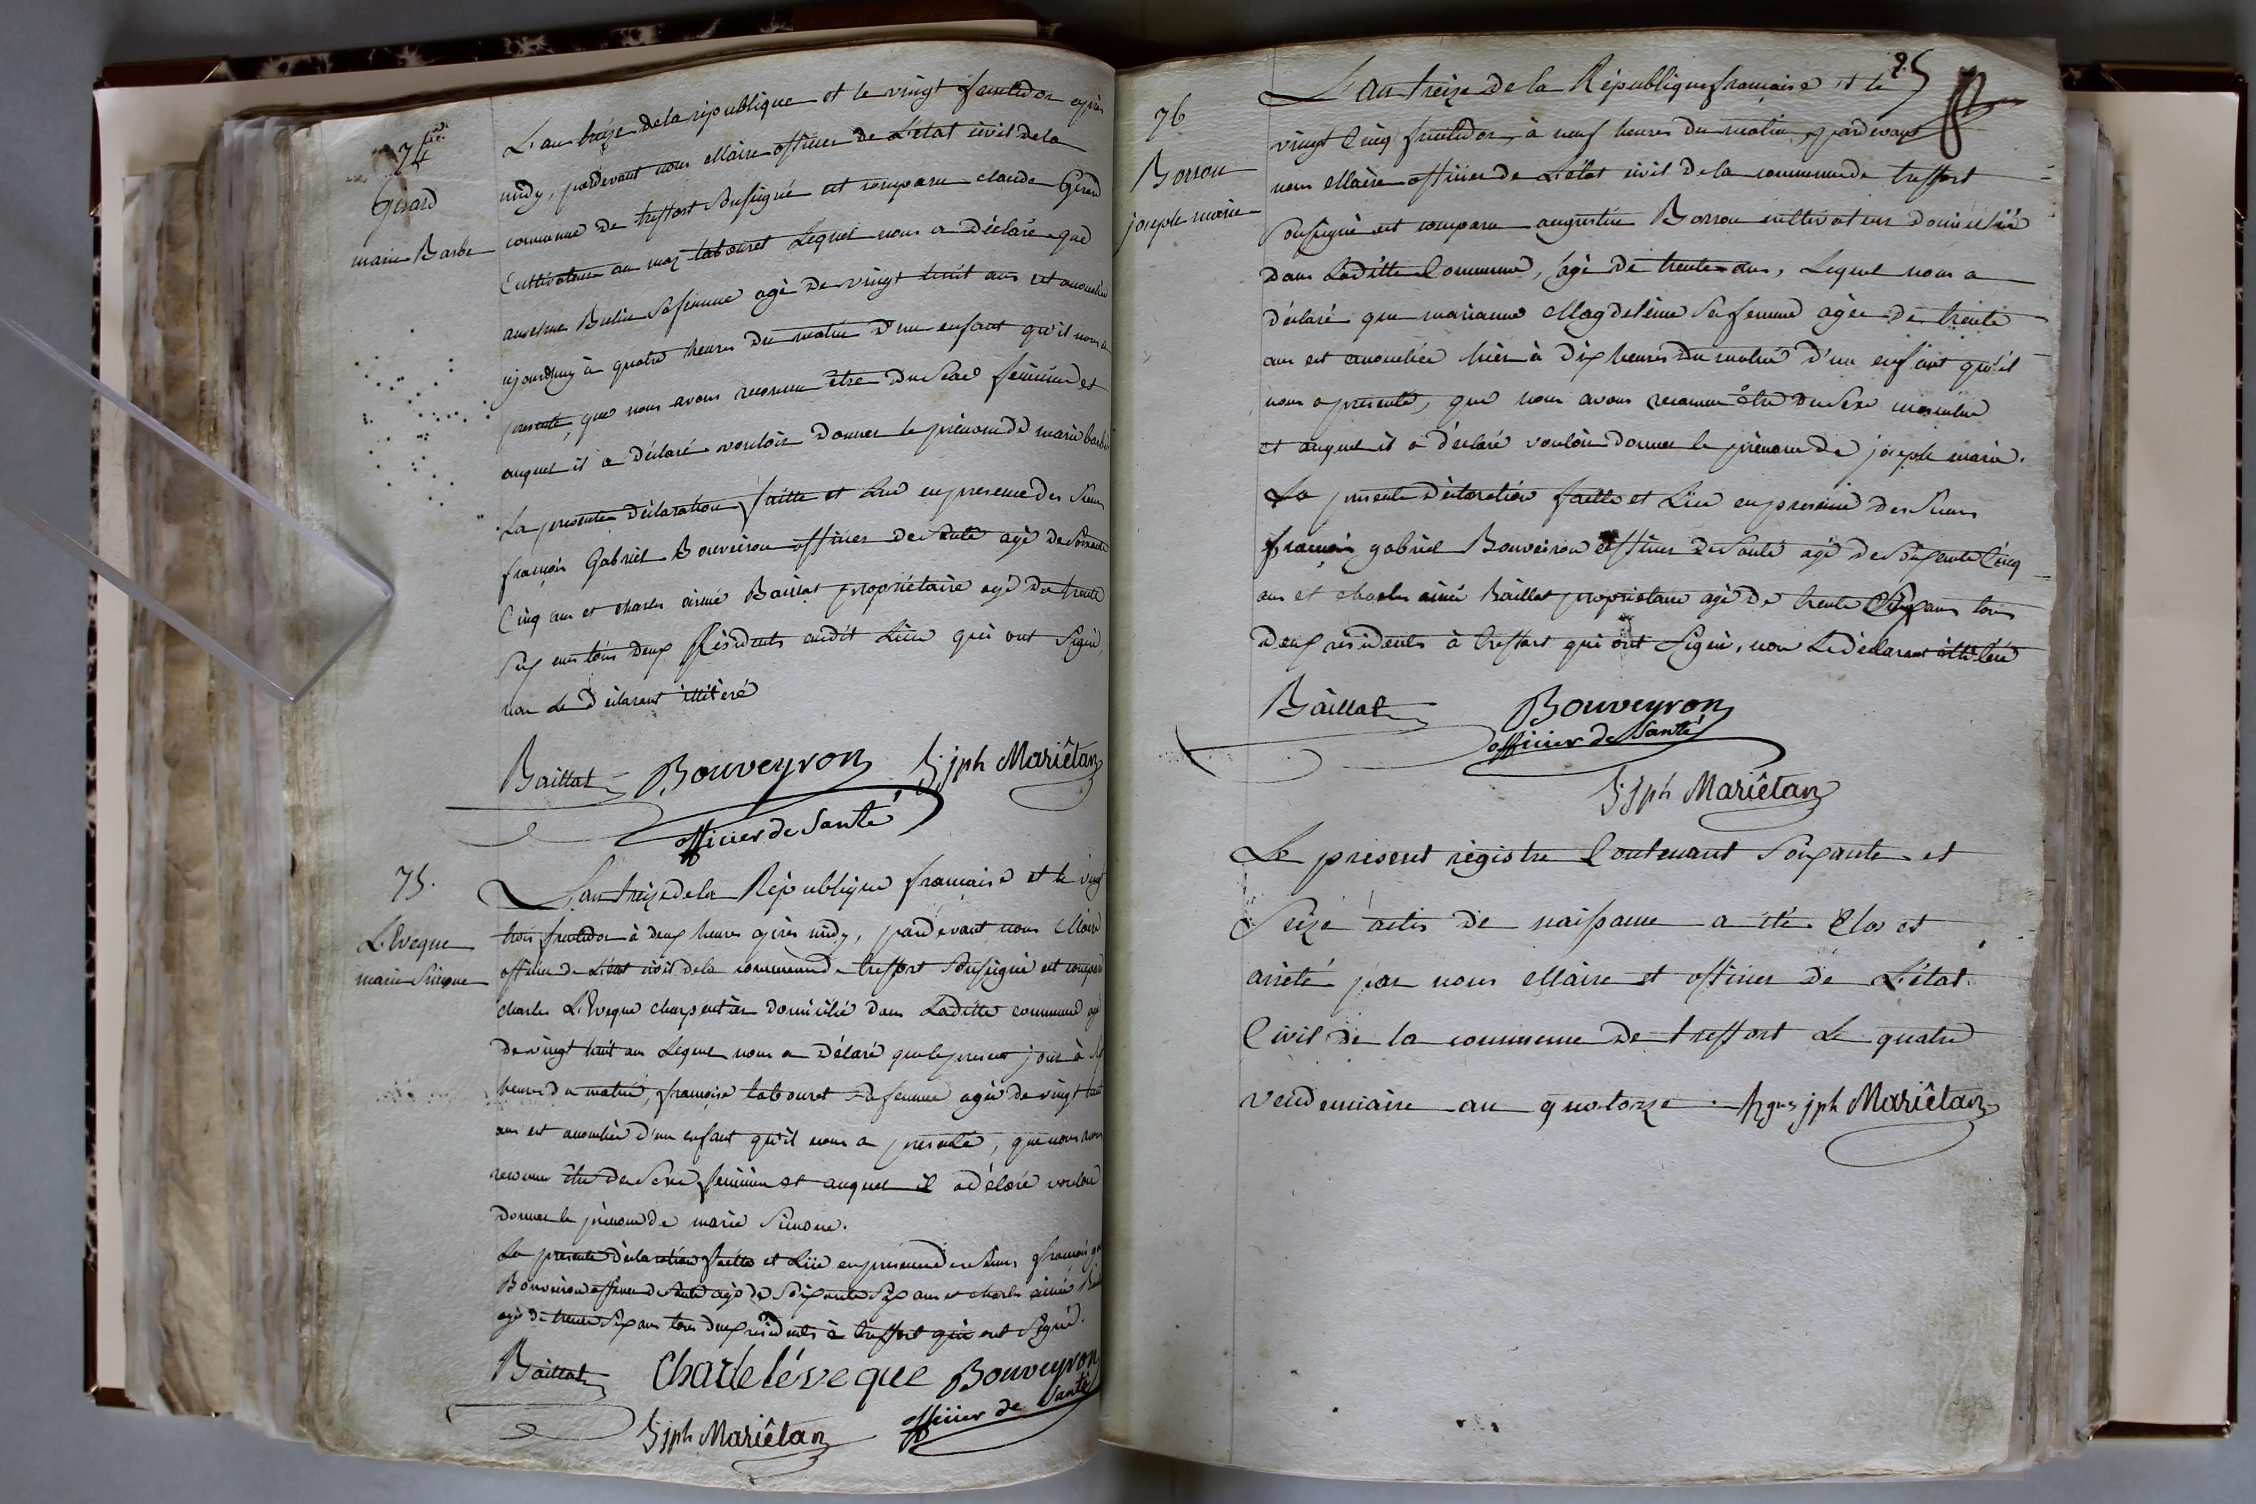 74
Girard
marie Barbe
L'an treize de la république et le vingt fructidor après
midy, pardevant nous Maire officier de L'état civil de la
commune de treffort Soussigné est comparu claude Girard
Cultivateur au maz tabouret Lequel nous a déclaré que
anselme Bulin Sa femme agé de vingt huit ans est accouchée
ajourdhuy à quatre heures du matin d'un enfant qu'il nous a
presenté, que nous avons reconnu être du Sexe feminin et
auquel il a déclaré vouloir donner le prénom de marie barbe
La presente déclaration faitte et Lue en presence des Sieurs
françois Gabriel Bouveiron officier de Santé agé de Soixante
Cinq ans et charles aimé Baillat propriétaire agé de trente
Six ans tous deux Résidents audit Lieu qui ont Signé,
non Le déclarant illitéré
Baillat Bouveyron jph Mariêtan
officier de Santé
75.
L'Eveque
marie Simone
L'an treize de la République française et le vingt
trois fructidor à deux heures après midy, pardevant nous Maire
officier de L'état civil de la commune de treffort Soussigné est comparu
charles L'Eveque charpentier domicilié dans Laditte commune agé
de vingt huit ans Lequel nous a délaré que le present jour à
heures du matin, françoise tabouret Sa femme agée de vingt huit
ans est accouchée d'un enfant qu'il nous a presenté, que nous avons
reconnu être du Sexe feminin et auquel il a déclaré vouloir
donner le prénom de marie Simone.
La presente déclaration faitte et Lüe en presence des Sieurs françois
Bouveiron officier de Santé agé de Soixante Six ans et charles aimé
agé de trente Six ans tous deux résidents à treffort qui ont Signé.
Baillat Charle léveque Bouveyron
officier de Santé
jph Mariêtan
25
76
Borron
joseph marie
L'an treize de la République française et le
vingt Cinq fructidor, à neuf heures du matin, pardevant
nous Maire officier de L'état civil de la commune de treffort
Soussigné est comparu augustin Borron cultivateur domicilié
dans Laditte Commune, agé de trente ans, Lequel nous a
déclaré que marianne Magdeleine Sa femme agée de trente
ans est accouchée hier à dix heures du matin d'un enfant qu'il
nous a presenté, que nous avons reconnu être du Sexe masculin
et auquel il a déclaré vouloir donner le prénom de joseph marie.
La presente déclaration faitte et Lüe en presence des Sieurs
françois gabriel Bouveiron officier de Santé agé de Soixante Cinq
ans et charles aimé Baillat propriétaire agé de trente Cinq ans tous
deux résidents à treffort qui ont Signé, non Le déclarant illitéré
Baillat Bouveyron
officier de Santé
jph Mariêtan
Le present régistre Contenant Soixante et
Seize actes de naissance a été Clos et
arreté par nous Maire et officier de L'état
Civil de la commune de treffort Le quatre
vendemiaire an quatorze. jph Mariêtan